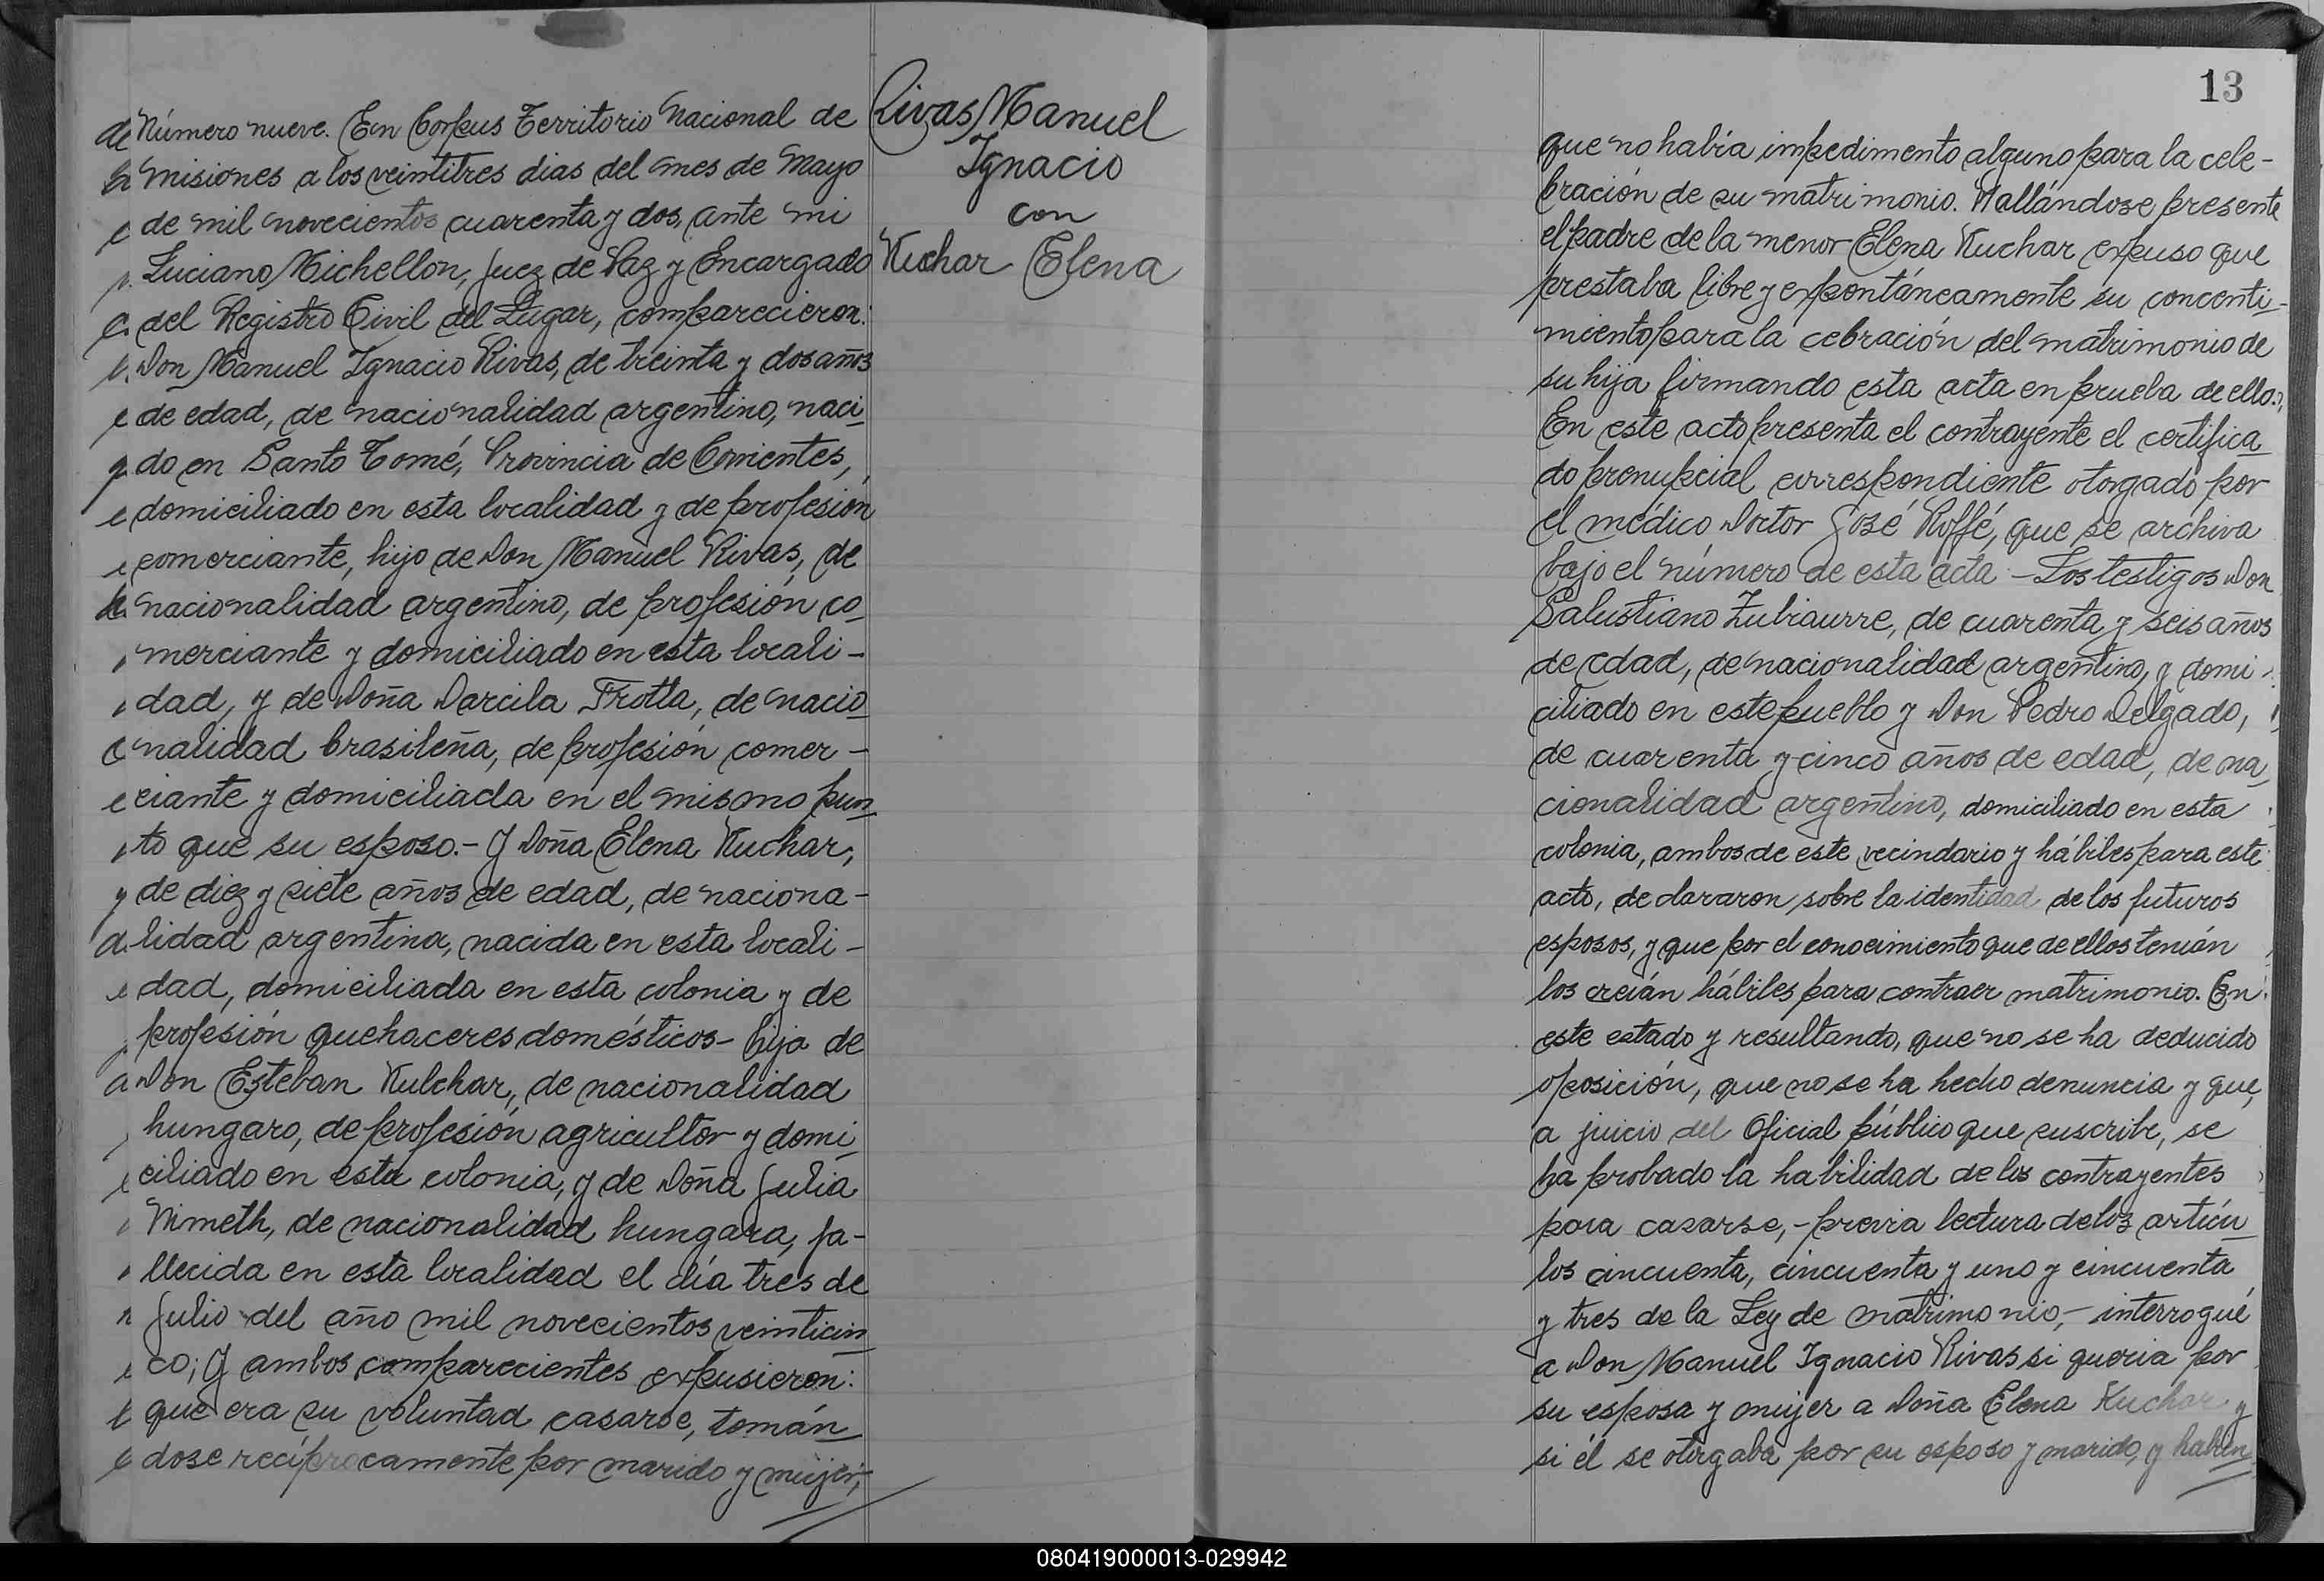 Número nueve. En Corpus Territorio Nacional de
Misiones a los veintitres dias del mes de Mayo
de mil novecientos cuarenta y dos, ante mi
Luciano Michellon, Juez de Paz y Encargado
del Registro Civil del Lugar, comparecieron:
Don Manuel Ignacio Rivas, de treinta y dos años
de edad, de nacionalidad argentino, naci
do en Santo Tomé, Provincia de Corrientes,
domiciliado en esta localidad y de profesión
comerciante, hijo de Don Manuel Rivas, de
nacionalidad argentino, de profesión co
merciante y domiciliado en esta locali-
dad, y de Doña Darcila Trotta, de nacio
nalidad brasileña, de profesión comer-
ciante y domiciliada en el mismo pun
to que su esposo.- Y Doña Elena Kuchar,
de diez y siete años de edad, de naciona-
lidad argentina, nacida en esta locali-
dad, domiciliada en esta colonia y de
profesión quehaceres domésticos- hija de
Don Esteban Kulchar, de nacionalidad
hungaro, de profesión agricultor y domi
ciliado en esta colonia, y de Doña Julia
Nimeth, de nacionalidad hungara, fa-
llecida en esta localidad el día tres de
Julio del año mil novecientos veinticin
co; Y ambos comparecientes expusieron:
que era su voluntad casarse, tomán
dose recíprocamente por marido y mujer,
Rivas Manuel
Ignacio
con
Kuchar Elena
13
que no había impedimento alguno para la cele-
bración de su matrimonio. Hallándose presente
el padre de la menor Elena Kuchar expuso que
prestaba libre y expontáneamente su concenti-
miento para la cebración del matrimonio de
su hija firmando esta acta en prueba de ello.
En este acto presenta el contrayente el certifica
do prenupcial correspondiente otorgado por
el médico Doctor José Roffé, que se archiva
bajo el número de esta acta.- Los testigos Don
Salustiano Zubiaurre, de cuarenta y seis años
de edad, de nacionalidad argentino, y domi-
ciliado en este pueblo y Don Pedro Delgado,
de cuarenta y cinco años de edad, de na
cionalidad argentino, domiciliado en esta
colonia, ambos de este vecindario y hábiles para este
acto, declararon sobre la identidad de los futuros
esposos, y que por el conocimiento que de ellos tenián
los creián hábiles para contraer matrimonio. En
este estado y resultando, que no se ha deducido
oposición, que no se ha hecho denuncia y que,
a juicio del Oficial público que suscribe, se
ha probado la habilidad de los contrayentes
para casarse,- previa lectura de los artícu
los cincuenta, cincuenta y uno y cincuenta
y tres de la Ley de matrimonio,- interrogué
a Don Manuel Ignacio Rivas si queria por
su esposa y mujer a Doña Elena Kuchar y
si él se otorgaba por su esposo y marido, y habien
080419000013-029942